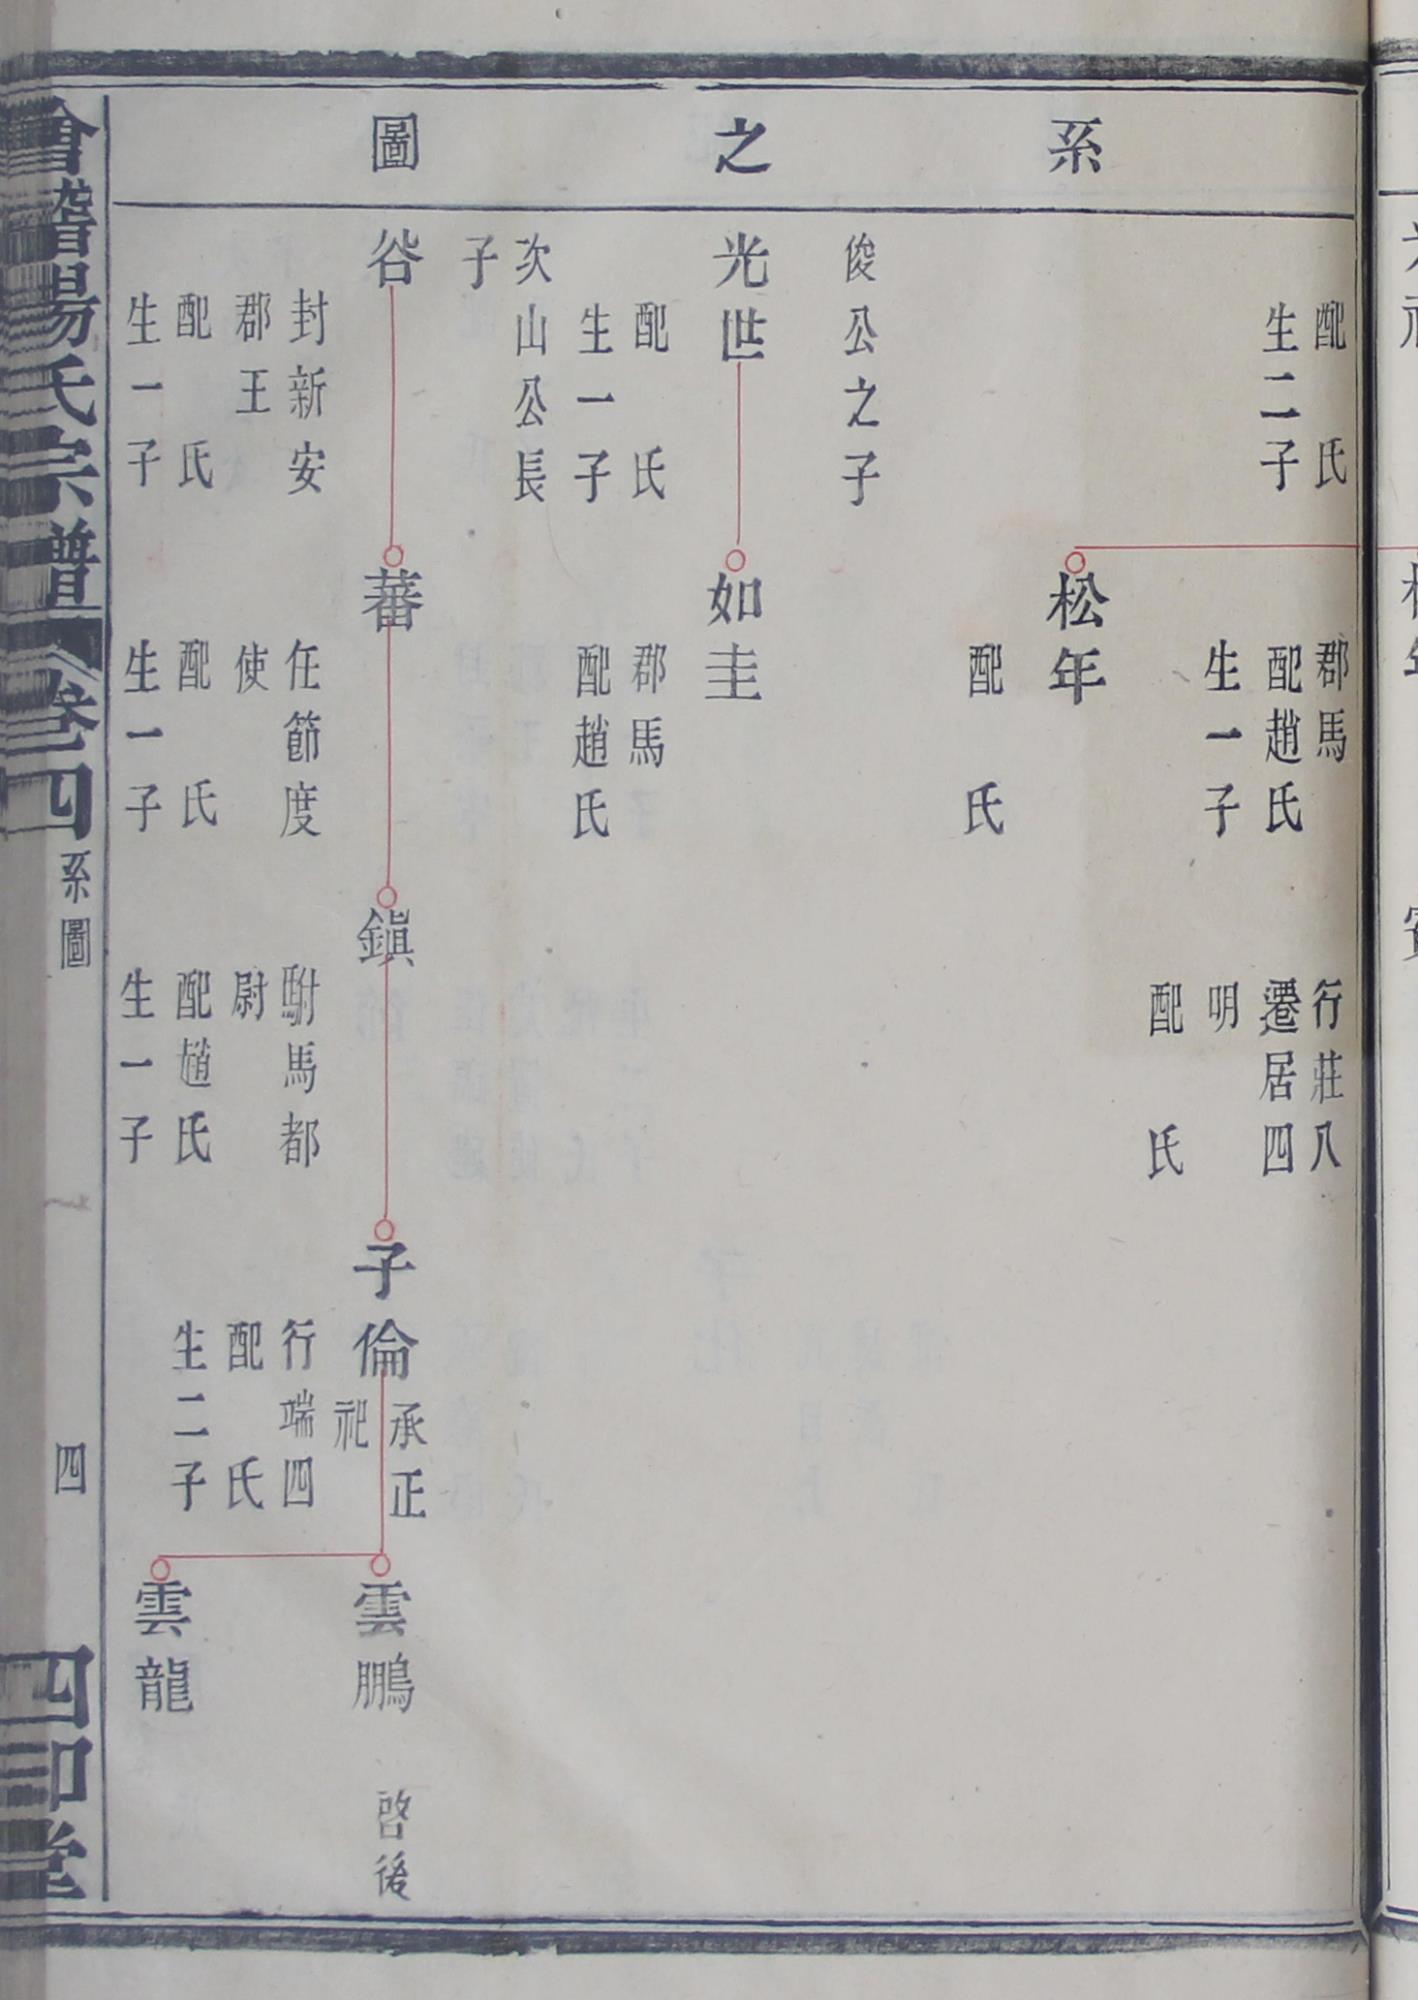 系之圖
配　氏
生二子
俊公之子
光世
配　氏
生一子
次山公長
子
谷
封新安
郡王
配　氏
生一子
郡馬
配趙氏
生一子
松年
配　氏
如圭
郡馬
配趙氏
蕃
任節度
使
配　氏
生一子
行莊八
遷居四
明
配　氏
鎭
駙馬都
尉
配趙氏
生一子
子倫
承正
祀
行端四
配　氏
生二子
雲鵬
啓後
雲龍
會稽楊氏宗譜
卷四
系圖
四
四知堂